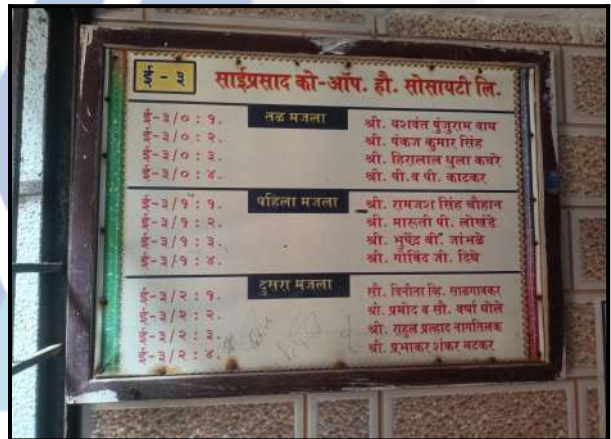 ई - ३ साईप्रसाद को-ऑप. हौ. सोसायटी लि.
तळ मजला
ई-३/० : १. श्री. यशवंत पुंजुराम वाघ
ई-३/० : २. श्री. पंकज कुमार सिंह
ई-३/० : ३. श्री. हिरालाल धुला कचरे
ई-३/० : ४. श्री. पी.व पी. काटकर
पहिला मजला
ई-३/१ : १. श्री. रामजश सिंह चौहान
ई-३/१ : २. श्री. मारूती पी. लोखंडे
ई-३/१ : ३. श्री. भुपेंद्र बी. जांभळे
ई-३/१ : ४. श्री. गोविंद जी. दिघे
दुसरा मजला
ई-३/२ : १. सौ. विनीता व्हि. साळगावकर
ई-३/२ : २. श्री. प्रमोद व सौ. वर्षा घोले
ई-३/२ : ३. श्री. राहुल प्रल्हाद नागतिलक
ई-३/२ : ४. श्री. प्रभाकर शंकर मटकर